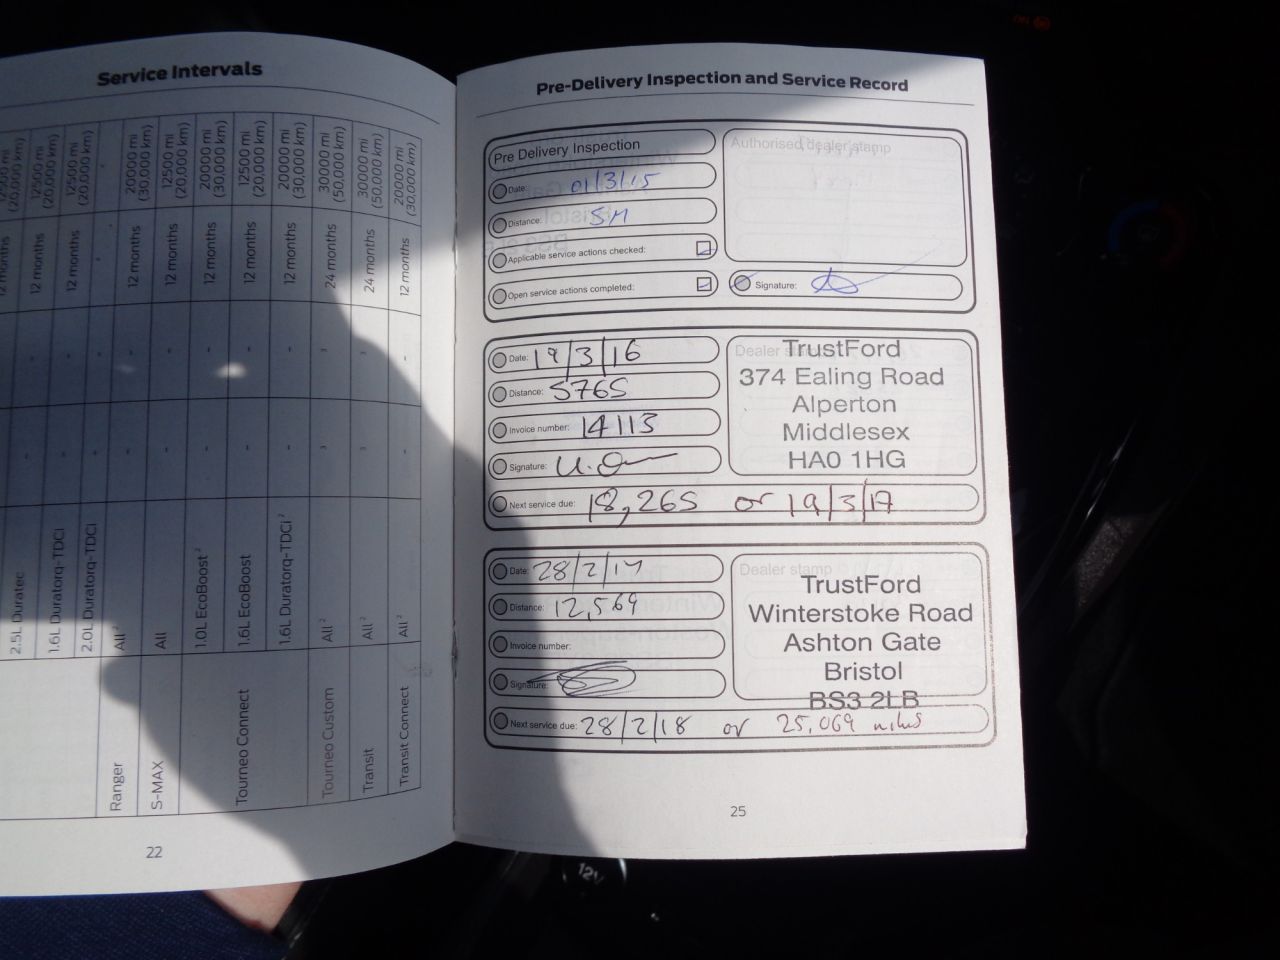 Service Intervals
12500 mi
(20,000 km)
12500 mi
(20,000 km)
12500 mi
(20,000 km)
-
20000 mi
(30,000 km)
12500 mi
(20,000 km)
20000 mi
(30,000 km)
12500 mi
(20,000 km)
20000 mi
(30,000 km)
30000 mi
(50,000 km)
30000 mi
(50,000 km)
20000 mi
(30,000 km)
12 months
12 months
12 months
-
12 months
12 months
12 months
12 months
12 months
24 months
24 months
12 months
2.5L Duratec
1.6L Duratorq-TDCi
2.0L Duratorq-TDCi
All ²
All
1.0L EcoBoost ²
1.6L EcoBoost
1.6L Duratorq-TDCi ²
All ²
All ²
All ²
Ranger
S-MAX
Tourneo Connect
Tourneo Custom
Transit
Transit Connect
22
Pre-Delivery Inspection and Service Record
Pre Delivery Inspection
Authorised dealer stamp
Date: 01/3/15
Distance: 5M
Applicable service actions checked:
Open service actions completed:
Signature:
Date: 19/3/16
Distance: 5765
Invoice number: 14113
Signature:
Next service due: 18,265 or 19/3/17
Dealer stamp
TrustFord
374 Ealing Road
Alperton
Middlesex
HA0 1HG
Date: 28/2/17
Distance: 12,569
Invoice number:
Signature:
Next service due: 28/2/18 or 25,069 miles
Dealer stamp
TrustFord
Winterstoke Road
Ashton Gate
Bristol
BS3 2LB
25
12V